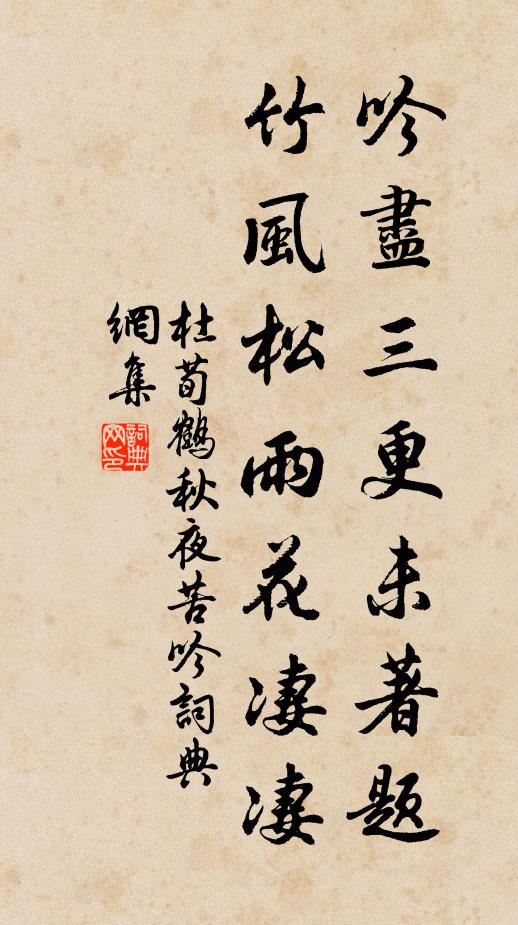 吟盡三更未著題
竹風松雨花凄凄
杜荀鶴秋夜苦吟詞典
網集
詞典
网印